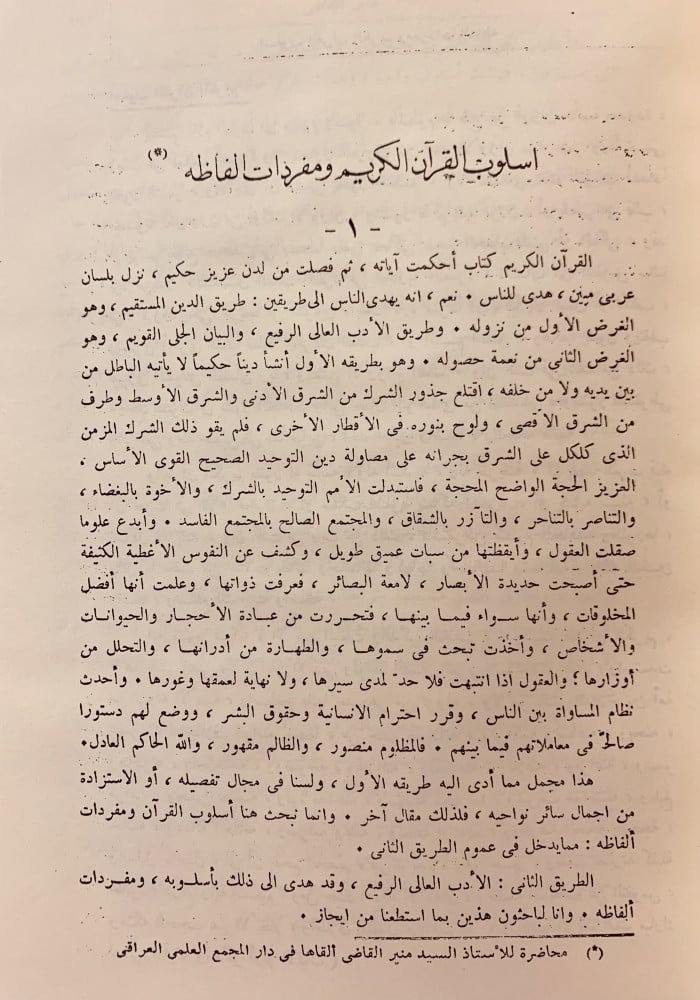 اسلوب القرآن الكريم ومفردات الفاظه (*)
- ١ -
القرآن الكريم كتاب أحكمت آياته ، ثم فصلت من لدن عزيز حكيم ، نزل بلسان
عربى مبين ، هدى للناس • نعم ، انه يهدى الناس الى طريقين : طريق الدين المستقيم ، وهو
الغرض الأول من نزوله • وطريق الأدب العالى الرفيع ، والبيان الجلى القويم ، وهو
الغرض الثانى من نعمة حصوله • وهو بطريقه الأول أنشأ ديناً حكيماً لا يأتيه الباطل من
بين يديه ولا من خلفه ، اقتلع جذور الشرك من الشرق الأدنى والشرق الأوسط وطرف
من الشرق الأقصى ، ولوح بنوره فى الأقطار الأخرى ، فلم يقو ذلك الشرك المزمن
الذى كلكل على الشرق بجرانه على مصاولة دين التوحيد الصحيح القوى الأساس .
العزيز الحجة الواضح المحجة ، فاستبدلت الأمم التوحيد بالشرك ، والأخوة بالبغضاء ،
والتناصر بالتناحر ، والتآزر بالشقاق ، والمجتمع الصالح بالمجتمع الفاسد • وأبدع علوما
صقلت العقول ، وأيقظتها من سبات عميق طويل ، وكشف عن النفوس الأغطية الكثيفة
حتى أصبحت حديدة الأبصار ، لامعة البصائر ، فعرفت ذواتها ، وعلمت أنها أفضل
المخلوقات ، وأنها سواء فيما بينها ، فتحررت من عبادة الأحجار والحيوانات
والأشخاص ، وأخذت تبحث فى سموها ، والطهارة من أدرانها ، والتحلل من
أوزارها ؛ والعقول اذا انتبهت فلا حد لمدى سيرها ، ولا نهاية لعمقها وغورها • وأحدث
نظام المساواة بين الناس ، وقرر احترام الانسانية وحقوق البشر ، ووضع لهم دستورا
صالحاً فى معاملاتهم فيما بينهم • فالمظلوم منصور ، والظالم مقهور ، والله الحاكم العادل•
هذا مجمل مما أدى اليه طريقه الأول ، ولسنا فى مجال تفصيله ، أو الاستزادة
من اجمال سائر نواحيه ، فلذلك مقال آخر • وانما نبحث هنا أسلوب القرآن ومفردات
ألفاظه : مما يدخل فى عموم الطريق الثانى •
الطريق الثانى : الأدب العالى الرفيع ، وقد هدى الى ذلك بأسلوبه ، ومفردات
ألفاظه • وانا لباحثون هذين بما استطعنا من إيجاز •
(*) محاضرة للأستاذ السيد منير القاضى ألقاها فى دار المجمع العلمى العراقى